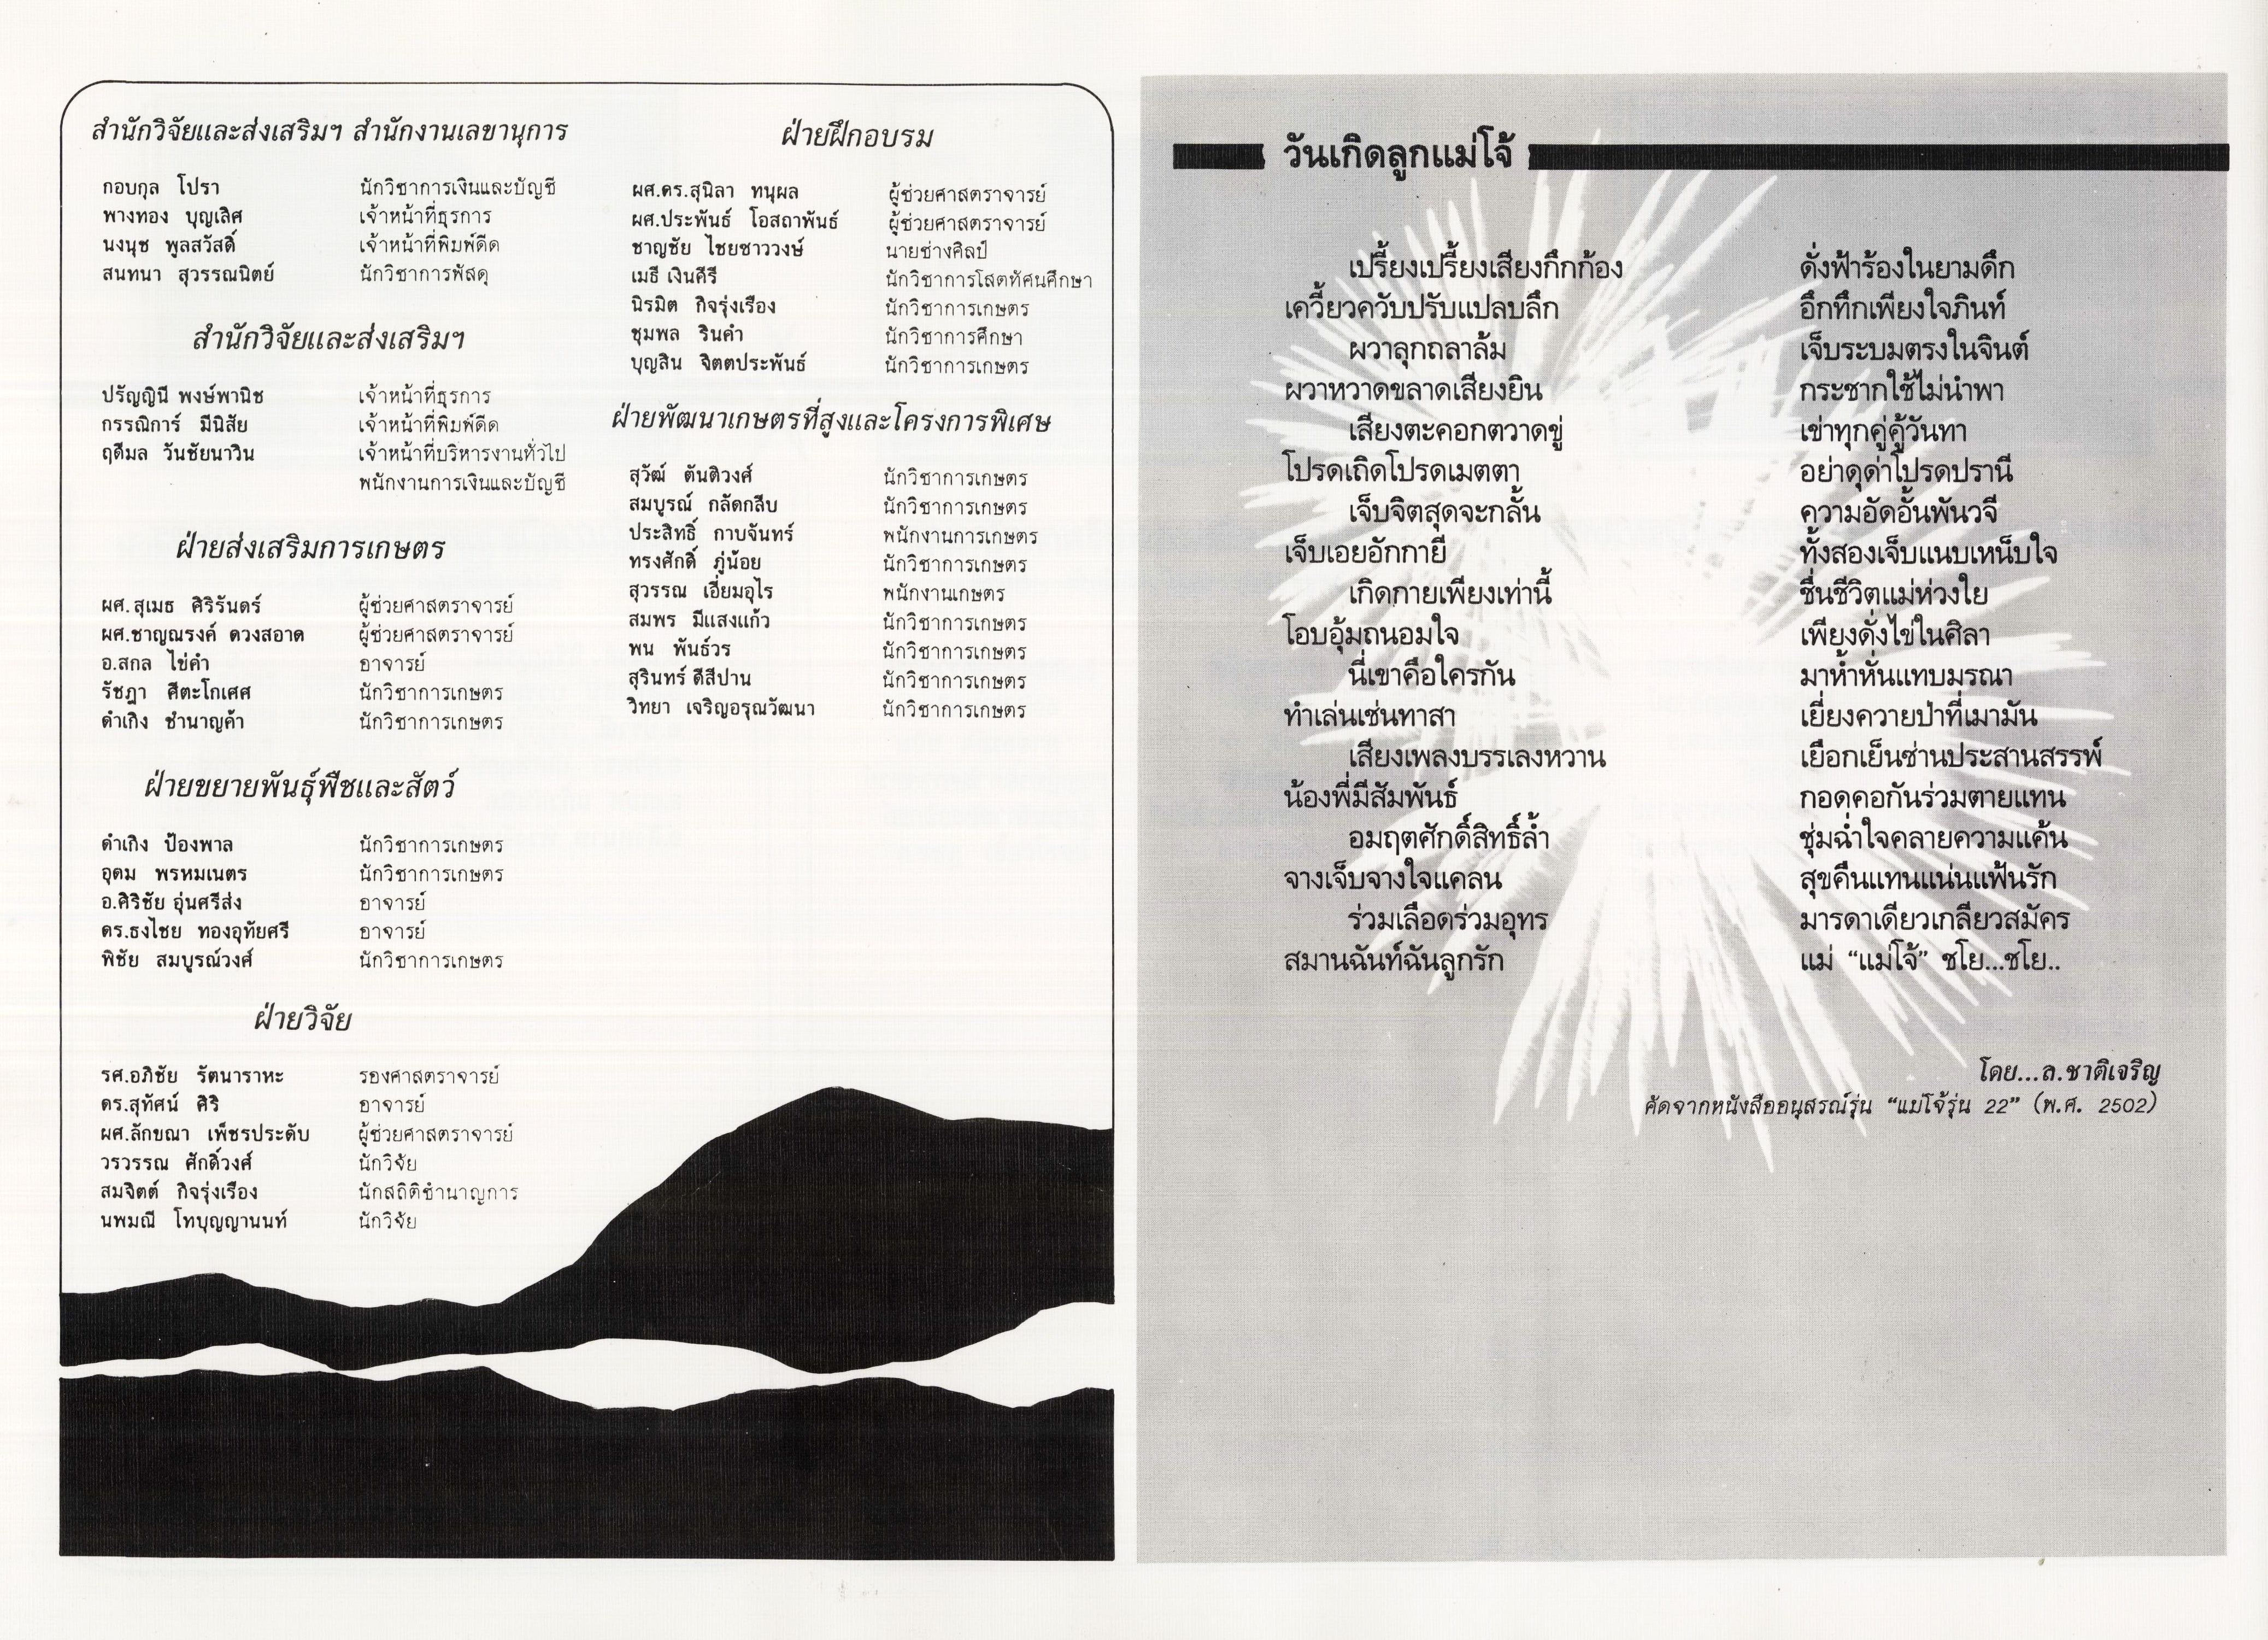 สำนักวิจัยและส่งเสริมฯ สำนักงานเลขานุการ
กอบกุล โปรา นักวิชาการเงินและบัญชี
พางทอง บุญเลิศ เจ้าหน้าที่ธุรการ
นงนุช พูลสวัสดิ์ เจ้าหน้าที่พิมพ์ดีด
สนทนา สุวรรณนิตย์ นักวิชาการพัสดุ
สำนักวิจัยและส่งเสริมฯ
ปรัญญินี พงษ์พานิช เจ้าหน้าที่ธุรการ
กรรณิการ์ มีนิสัย เจ้าหน้าที่พิมพ์ดีด
ฤดีมล วันชัยนาวิน เจ้าหน้าที่บริหารงานทั่วไป
พนักงานการเงินและบัญชี
ฝ่ายส่งเสริมการเกษตร
ผศ.สุเมธ ศิริรันดร์ ผู้ช่วยศาสตราจารย์
ผศ.ชาญณรงค์ ดวงสอาด ผู้ช่วยศาสตราจารย์
อ.สกล ไข่คำ อาจารย์
รัชฎา ศีตะโกเศศ นักวิชาการเกษตร
ดำเกิง ชำนาญค้า นักวิชาการเกษตร
ฝ่ายขยายพันธุ์พืชและสัตว์
ดำเกิง ป้องพาล นักวิชาการเกษตร
อุดม พรหมเนตร นักวิชาการเกษตร
อ.ศิริชัย อุ่นศรีส่ง อาจารย์
ดร.ธงไชย ทองอุทัยศรี อาจารย์
พิชัย สมบูรณ์วงศ์ นักวิชาการเกษตร
ฝ่ายวิจัย
รศ.อภิชัย รัตนาราหะ รองศาสตราจารย์
ดร.สุทัศน์ ศิริ อาจารย์
ผศ.ลักขณา เพ็ชรประดับ ผู้ช่วยศาสตราจารย์
วรวรรณ ศักดิ์วงศ์ นักวิจัย
สมจิตต์ กิจรุ่งเรือง นักสถิติชำนาญการ
นพมณี โทบุญญานนท์ นักวิจัย
ฝ่ายฝึกอบรม
ผศ.ดร.สุนิลา ทนุผล ผู้ช่วยศาสตราจารย์
ผศ.ประพันธ์ โอสถาพันธ์ ผู้ช่วยศาสตราจารย์
ชาญชัย ไชยซาววงษ์ นายช่างศิลป์
เมธี เงินคีรี นักวิชาการโสตทัศนศึกษา
นิรมิต กิจรุ่งเรือง นักวิชาการเกษตร
ชุมพล รินคำ นักวิชาการศึกษา
บุญสิน จิตตประพันธ์ นักวิชาการเกษตร
ฝ่ายพัฒนาเกษตรที่สูงและโครงการพิเศษ
สุวัฒ์ ตันติวงศ์ นักวิชาการเกษตร
สมบูรณ์ กลัดกลีบ นักวิชาการเกษตร
ประสิทธิ์ กาบจันทร์ พนักงานการเกษตร
ทรงศักดิ์ ภู่น้อย นักวิชาการเกษตร
สุวรรณ เอี่ยมอุไร พนักงานเกษตร
สมพร มีแสงแก้ว นักวิชาการเกษตร
พน พันธ์วร นักวิชาการเกษตร
สุรินทร์ ดีสีปาน นักวิชาการเกษตร
วิทยา เจริญอรุณวัฒนา นักวิชาการเกษตร
วันเกิดลูกแม่โจ้
เปรี้ยงเปรี้ยงเสียงกึกก้อง ดั่งฟ้าร้องในยามดึก
เควี้ยวควับปรับแปลบลึก อึกทึกเพียงใจภินท์
ผวาลุกถลาล้ม เจ็บระบมตรงในจินต์
ผวาหวาดขลาดเสียงยิน กระชากใช้ไม่นำพา
เสียงตะคอกตวาดขู่ เข่าทุกคู่คู้วันทา
โปรดเถิดโปรดเมตตา อย่าดุด่าโปรดปรานี
เจ็บจิตสุดจะกลั้น ความอัดอั้นพันวจี
เจ็บเอยอักกายี ทั้งสองเจ็บแนบเหน็บใจ
เกิดกายเพียงเท่านี้ ชื่นชีวิตแม่ห่วงใย
โอบอุ้มถนอมใจ เพียงดั่งไข่ในศิลา
นี่เขาคือใครกัน มาห้ำหั่นแทบมรณา
ทำเล่นเช่นทาสา เยี่ยงควายป่าที่เมามัน
เสียงเพลงบรรเลงหวาน เยือกเย็นซ่านประสานสรรพ์
น้องพี่มีสัมพันธ์ กอดคอกันร่วมตายแทน
อมฤตศักดิ์สิทธิ์ล้ำ ชุ่มฉ่ำใจคลายความแค้น
จางเจ็บจางใจแคลน สุขคืนแทนแน่นแฟ้นรัก
ร่วมเลือดร่วมอุทร มารดาเดียวเกลียวสมัคร
สมานฉันท์ฉันลูกรัก แม่ “แม่โจ้” ชโย...ชโย..
โดย...ล.ชาติเจริญ
คัดจากหนังสืออนุสรณ์รุ่น “แม่โจ้รุ่น 22” (พ.ศ. 2502)